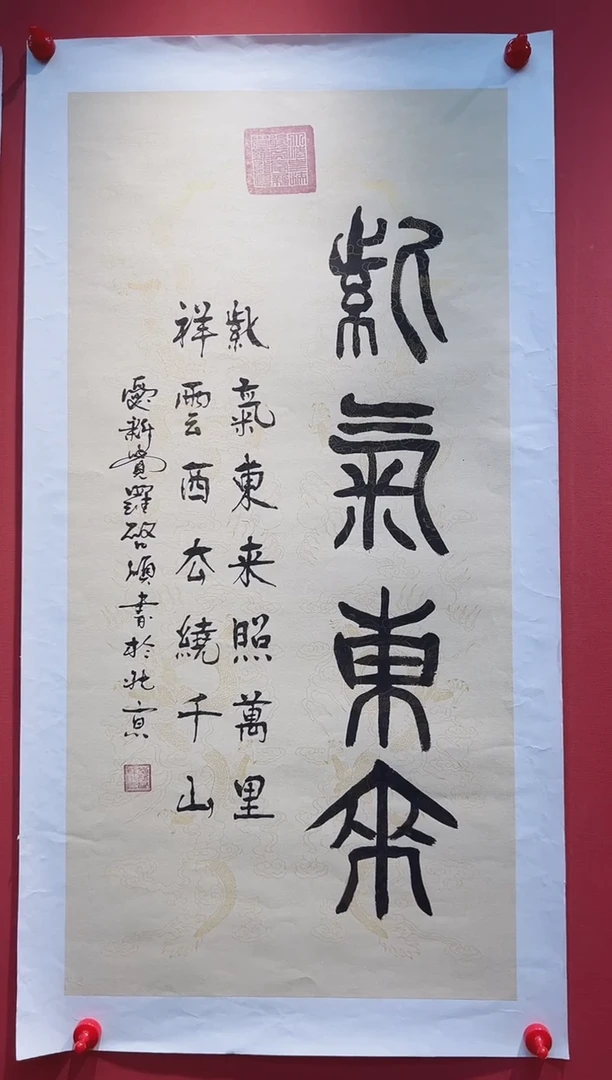 紫氣東來
紫氣東来照萬里
祥雲西去繞千山
愛新覺羅啓碩書於北京